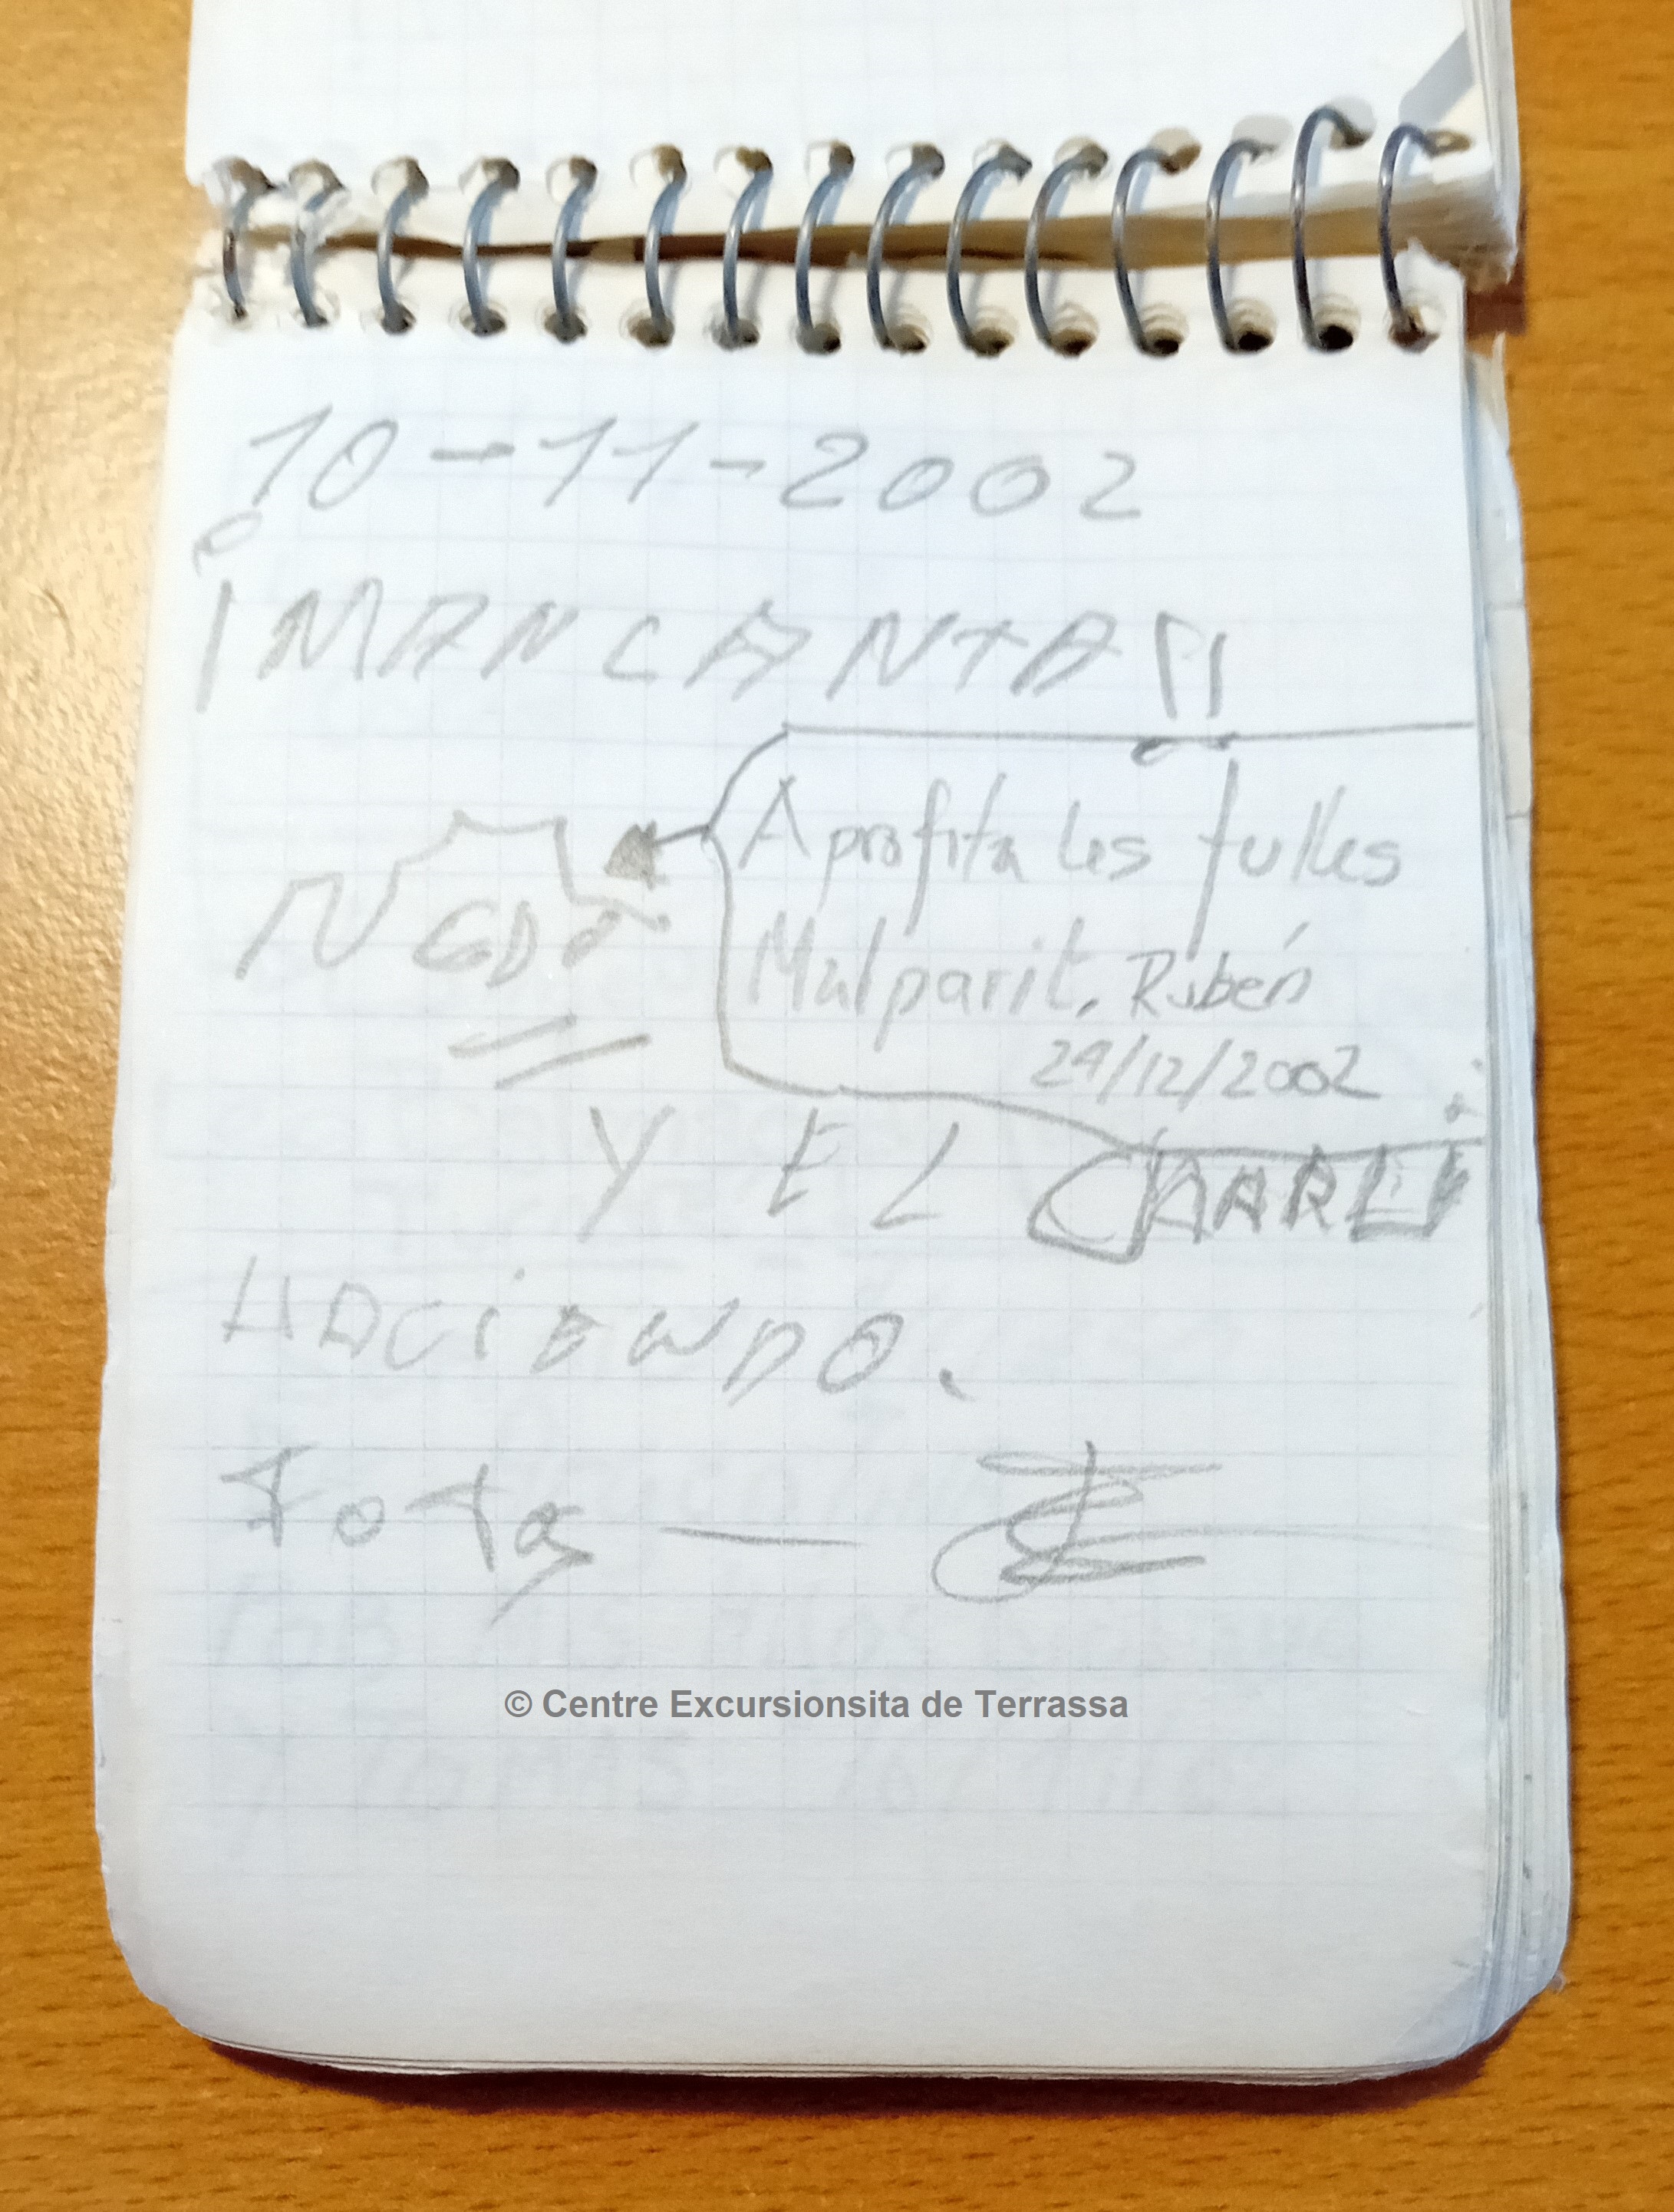 10-11-2002
¡MANCANTA!!
Aprofita les fulles
Malparit. Rubén
29/12/2002
Y EL CHARLI
HACIENDO.
FoTos
© Centre Excursionsita de Terrassa